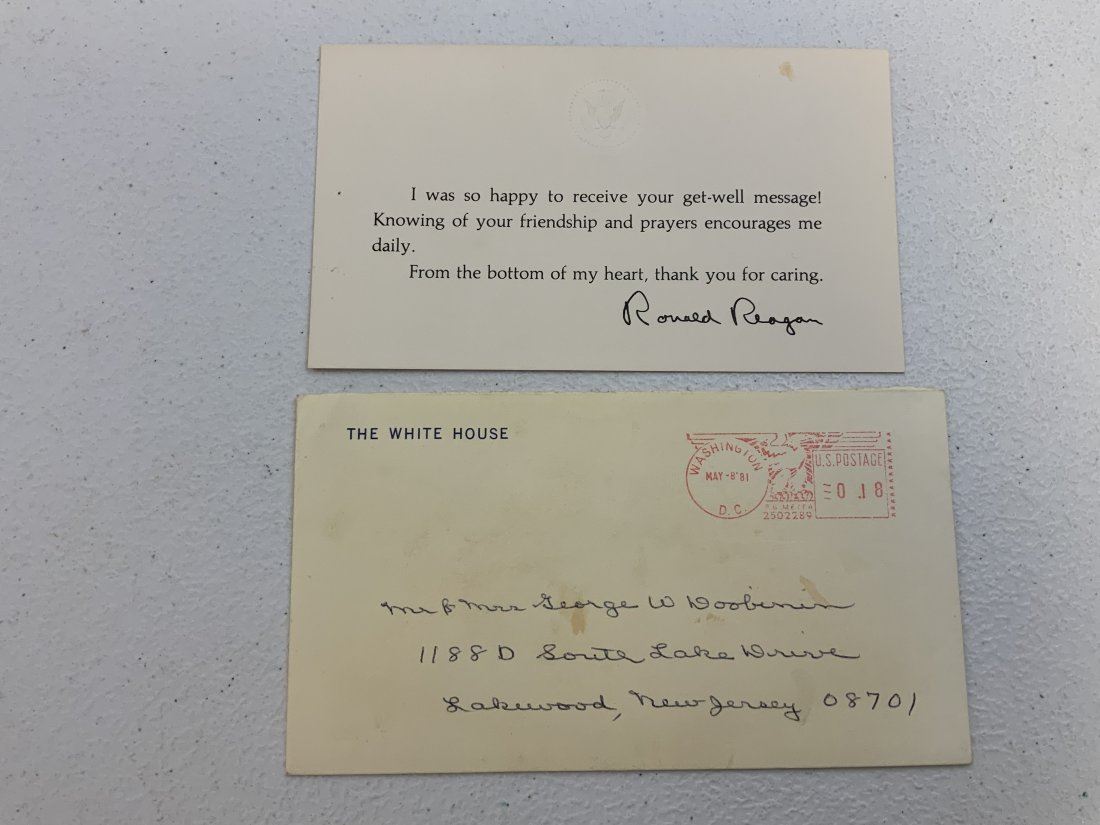 I was so happy to receive your get-well message!
Knowing of your friendship and prayers encourages me
daily.
From the bottom of my heart, thank you for caring.
Ronald Reagan
THE WHITE HOUSE
WASHINGTON
MAY -8 '81
D.C.
U.S. POSTAGE
018
P.B. METER
2502289
Mr & Mrs George W
1188 D South Lake Drive
Lakewood, New Jersey 08701